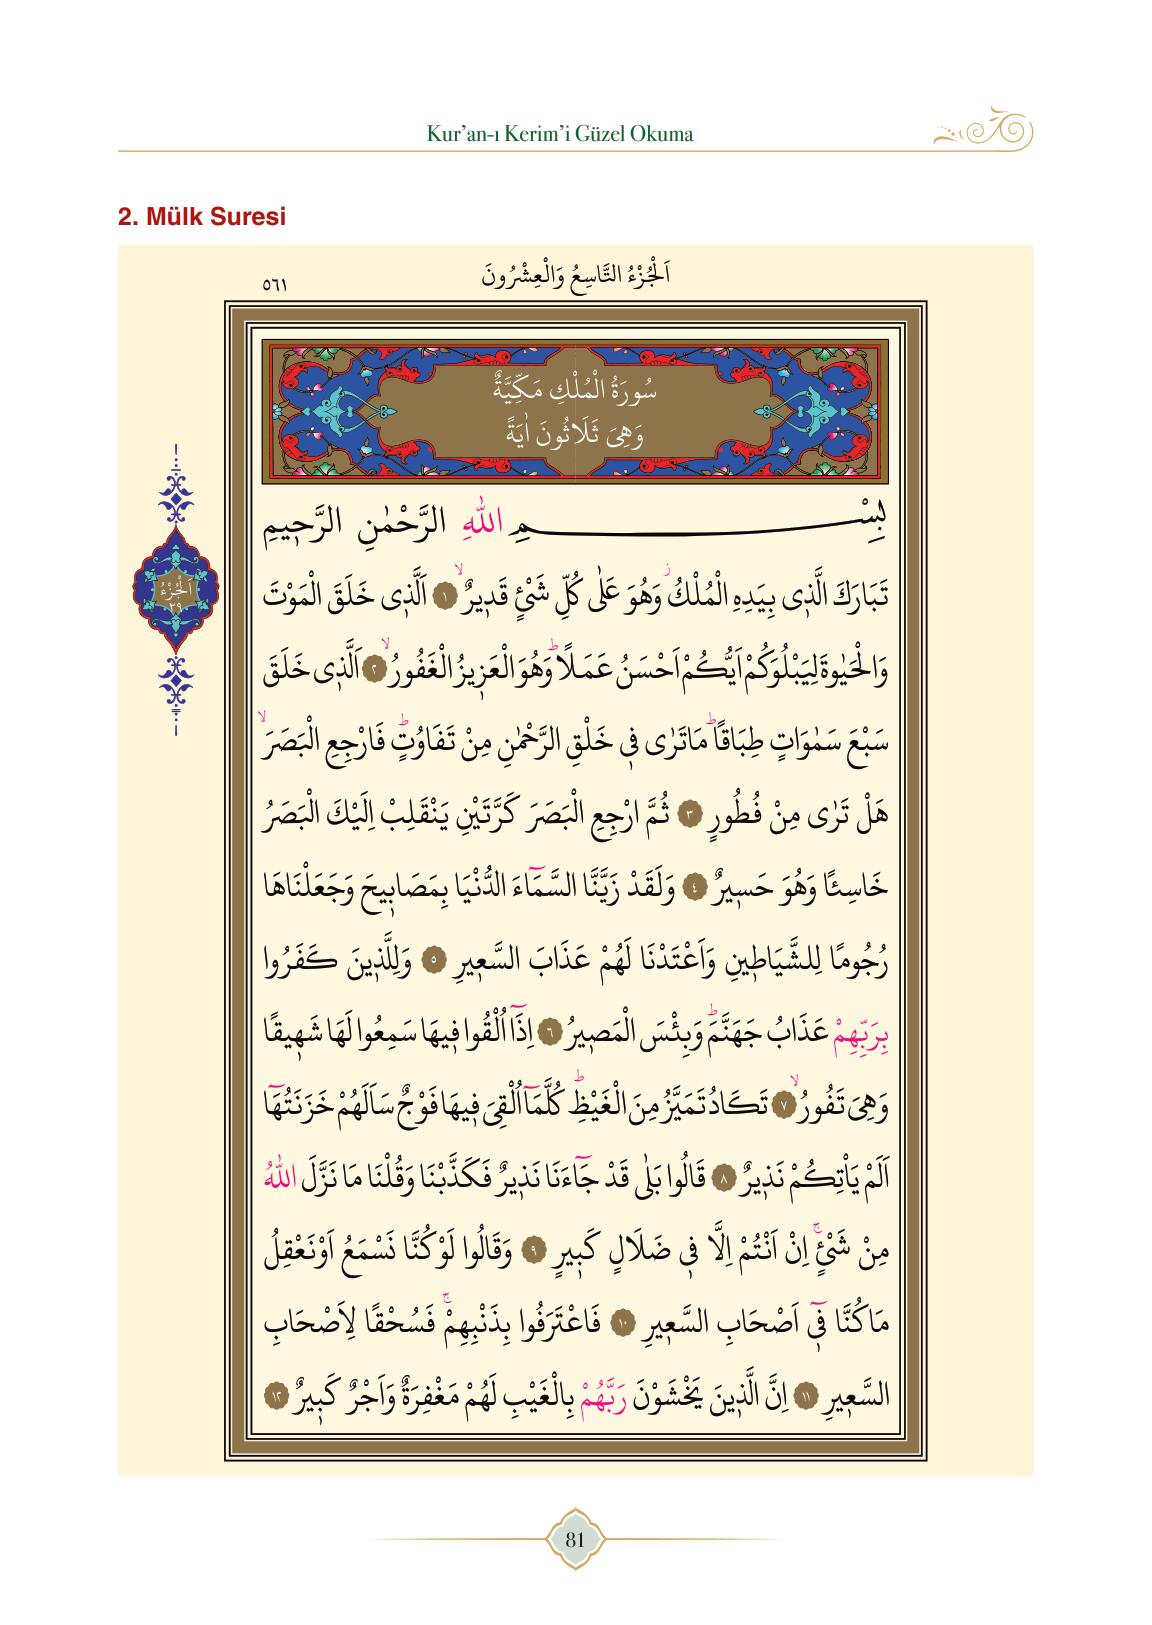 Kur’an-ı Kerim’i Güzel Okuma
2. Mülk Suresi
اَلْجُزْءُ التَّاسِعُ وَالْعِشْرُونَ
٥٦١
سُورَةُ الْمُلْكِ مَكِّيَّةٌ
وَهِيَ ثَلَاثُونَ اٰيَةً
اَلْجُزْءُ
٢٩
بِسْمِ اللّٰهِ الرَّحْمٰنِ الرَّح۪يمِ
تَبَارَكَ الَّذ۪ى بِيَدِهِ الْمُلْكُۘ وَهُوَ عَلٰى كُلِّ شَىْءٍ قَد۪يرٌۙ ﴿١﴾ اَلَّذ۪ى خَلَقَ الْمَوْتَ
وَالْحَيٰوةَ لِيَبْلُوَكُمْ اَيُّكُمْ اَحْسَنُ عَمَلًاۜ وَهُوَ الْعَز۪يزُ الْغَفُورُۙ ﴿٢﴾ اَلَّذ۪ى خَلَقَ
سَبْعَ سَمٰوَاتٍ طِبَاقًاۜ مَا تَرٰى ف۪ى خَلْقِ الرَّحْمٰنِ مِنْ تَفَاوُتٍۜ فَارْجِعِ الْبَصَرَۙ
هَلْ تَرٰى مِنْ فُطُورٍ ﴿٣﴾ ثُمَّ ارْجِعِ الْبَصَرَ كَرَّتَيْنِ يَنْقَلِبْ اِلَيْكَ الْبَصَرُ
خَاسِئًا وَهُوَ حَس۪يرٌ ﴿٤﴾ وَلَقَدْ زَيَّنَّا السَّمَٓاءَ الدُّنْيَا بِمَصَاب۪يحَ وَجَعَلْنَاهَا
رُجُومًا لِلشَّيَاط۪ينِ وَاَعْتَدْنَا لَهُمْ عَذَابَ السَّع۪يرِ ﴿٥﴾ وَلِلَّذ۪ينَ كَفَرُوا
بِرَبِّهِمْ عَذَابُ جَهَنَّمَۜ وَبِئْسَ الْمَص۪يرُ ﴿٦﴾ اِذَٓا اُلْقُوا ف۪يهَا سَمِعُوا لَهَا شَه۪يقًا
وَهِىَ تَفُورُۙ ﴿٧﴾ تَكَادُ تَمَيَّزُ مِنَ الْغَيْظِۜ كُلَّمَٓا اُلْقِىَ ف۪يهَا فَوْجٌ سَاَلَهُمْ خَزَنَتُهَٓا
اَلَمْ يَأْتِكُمْ نَذ۪يرٌ ﴿٨﴾ قَالُوا بَلٰى قَدْ جَٓاءَنَا نَذ۪يرٌ فَكَذَّبْنَا وَقُلْنَا مَا نَزَّلَ اللّٰهُ
مِنْ شَىْءٍۚ اِنْ اَنْتُمْ اِلَّا ف۪ى ضَلَالٍ كَب۪يرٍ ﴿٩﴾ وَقَالُوا لَوْ كُنَّا نَسْمَعُ اَوْ نَعْقِلُ
مَا كُنَّا ف۪ٓى اَصْحَابِ السَّع۪يرِ ﴿١٠﴾ فَاعْتَرَفُوا بِذَنْبِهِمْۚ فَسُحْقًا لِاَصْحَابِ
السَّع۪يرِ ﴿١١﴾ اِنَّ الَّذ۪ينَ يَخْشَوْنَ رَبَّهُمْ بِالْغَيْبِ لَهُمْ مَغْفِرَةٌ وَاَجْرٌ كَب۪يرٌ ﴿١٢﴾
81